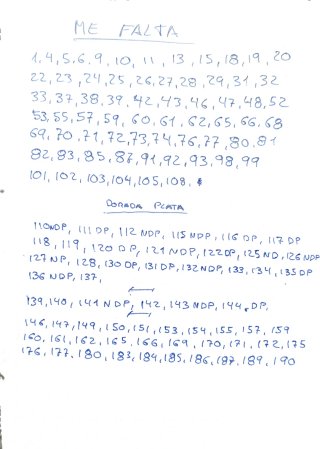 ME FALTA
1.4,5.6.9,10,11,13,15,18,19,20
22,23,24,25,26,27,28,29,31,32
33,37,38,39.42,43,46,47,48,52
53,55,57,59,60.61.62,65,66.68
69,70.71,72,73,74,76,77,80,81
82,83,85,87,91,92,93,98,99
101,102,103,104,105,108.
DORADA PLATA
110NDP, 111 DP, 112 NDP, 115 NDP, 116 DP, 117 DP
118, 119, 120 DP, 121 NDP, 122DP, 125 ND, 126 NDP
127 NP, 128, 130 DP, 131 DP, 132 NDP, 133, 134, 135 DP
136 NDP, 137,
139,140, 141 NDP, 142, 143 NDP, 144. DP.
146,147,149,150,151,153,154,155,157,159
160,161,162,165.166,169,170,171.172,175
176,177.180,183,184,185,186,187.189,190